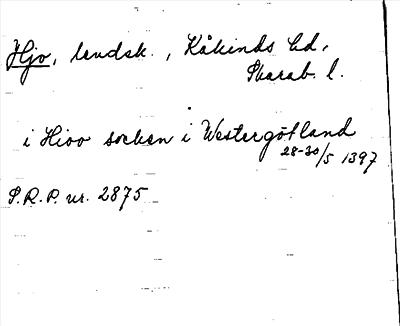 Hjo, landsk., Kåkinds hd,
Skarab. l.
i Hioo socken i Westergötland
28-30/5 1397
S.R.P. nr. 2875